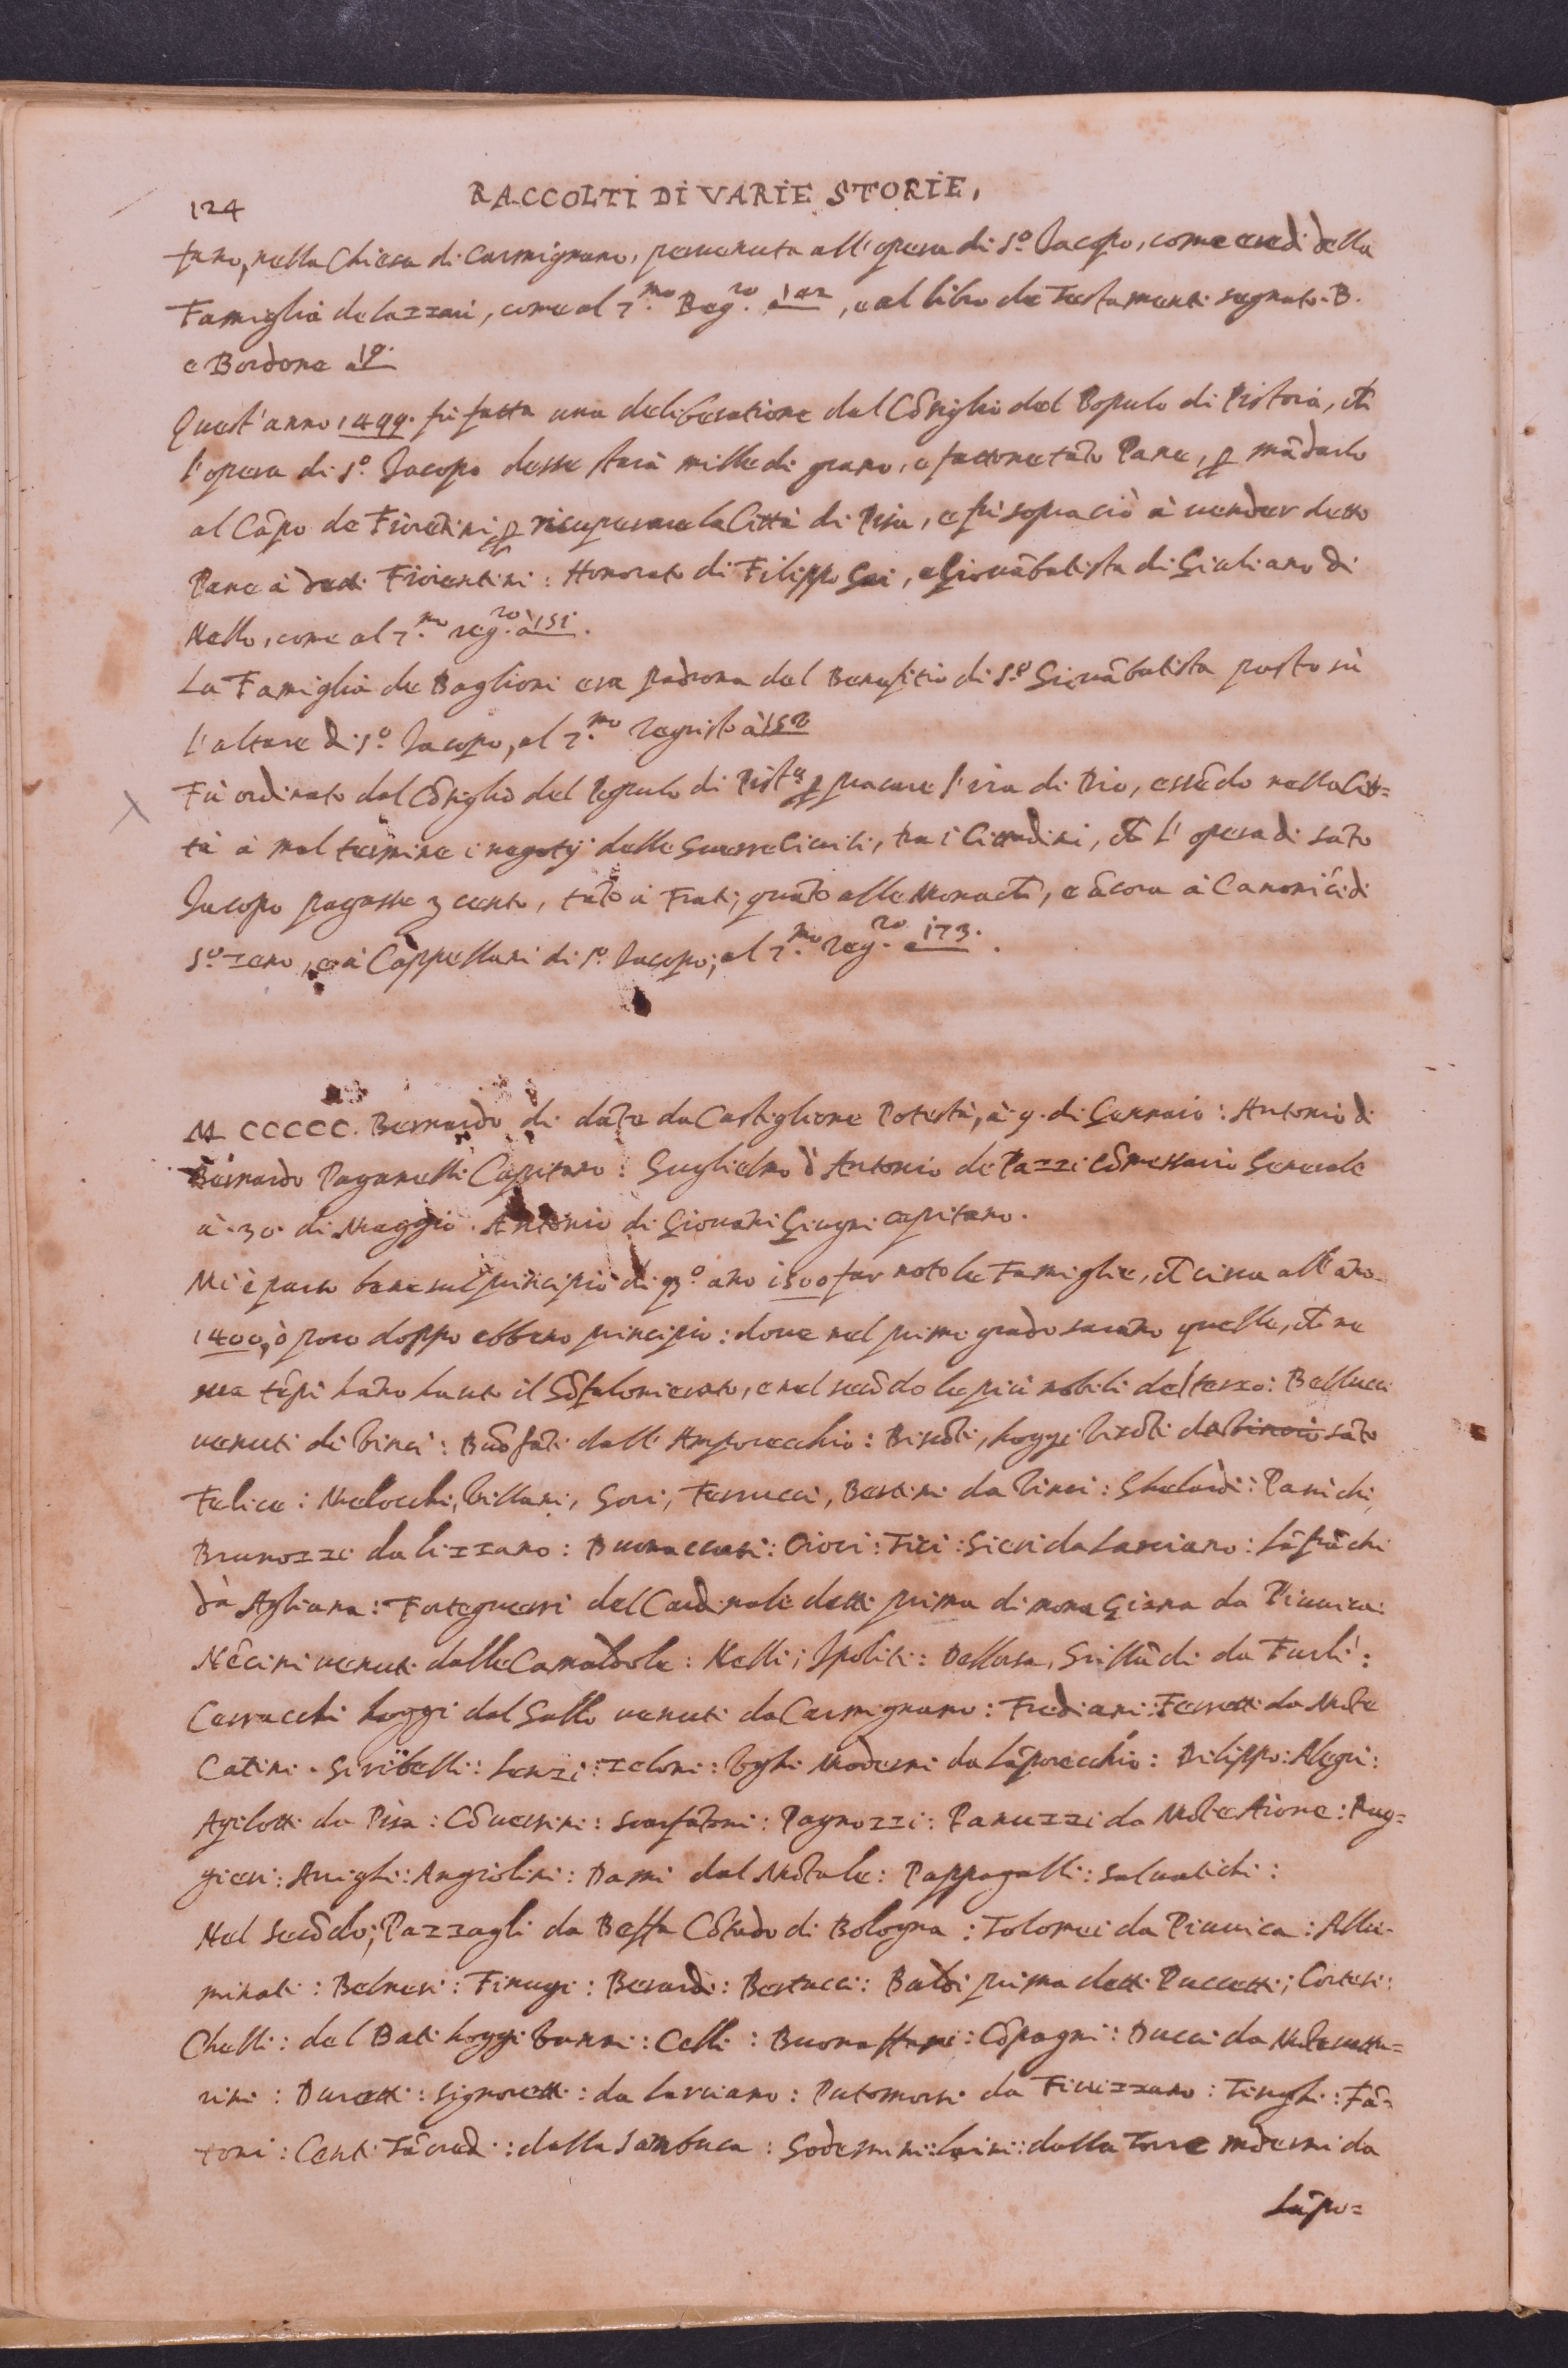 124
RACCOLTI DI VARIE STORIE,
fano, nella Chiesa di Carmignano, peruenuta all'opera di S.º Jacopo, come eredi della
Famiglia de Lazzari, come al 7.mo Reg.ro à 142, e al libro de Testamenti segnato. B.
e Bordone à 19.
Quest'anno 1499. fù fatta una deliberatione dal Cõsiglio del Populo di Pistoia, ch̃
l'opera di S.º Jacopo desse staia mille di grano, e facessone tãto Pane, ꝑ mãdarlo
al Cãpo de Fiorẽtini ꝑ recuperare la Città di Pisa, e fù sopra ciò à uender detto
Pane à detti Fiorentini: Honorato di Filippo Gai, e Giouãbatista di Giuliano di
Nello, come al 7.mo reg.ro à 151.
La Famiglia de Baglioni era padrona del Benefitio di S.º Giouãbatista posto sù
l'altare di S.º Jacopo, al 7.mo Registro à 152
Fù ordinato dal Cõsiglio del Populo di Pist.a ꝑ placare l'ira di Dio, essẽdo nella Cit=
tà à mal termine i negotij delle Guerre Ciuili, tra i Cittadini, ch̃ l'opera di sãto
Jacopo pagasse 3 cento, tãto à Frati, quãto alle Monach̃, e ãcora à Canonici di
S.º Zeno, e à Cappellani di S.º Jacopo; al 7.mo Reg.ro à 173.
M CCCCC. Bernardo di dãte da Castiglione Potestà, à 9. di Gennaio: Antonio di
Bernardo Paganelli Capitano: Guglielmo d'Antonio de Pazzi Cõmessario Generale
à 30. di Maggio. Antonio di Giouãni Giugni capitano.
Mi è parso bene sul principio di qsº ãno 1500 far noto le Famiglie, ch̃ circa all'ãno
1400, ò poco doppo ebbeno principio: doue nel primo grado sarãno quelle, ch̃ ne
tẽpi hãno hauto il Gõfalonierato, e nel secõdo le più nobili del terzo: Bellucci
uenuti di Vinci: Buõfãti dall'Amporecchio: Bisc̃oti, hoggi Viscõti da sãto
Felice: Melocchi, Villani, Gori, Ferrucci, Bertini da Vinci: Ghelardi: Panichi,
Brunozzi da Lizzano: Buonaccorsi: Cioci: Tici: Sieri da Larciano: Lãfrãchi
dà Agliana: Forteguerri del Cardinale detti prima di mona Gianna da Piuuica:
Nẽcini uenuti dalle Camaldole: Nelli; Ipoliti: Dellorsa, Grillãdi da Furlì:
Cerracchi hoggi dal Gallo uenuti da Carmignano: Frediani: Ferretti da Mõte
Catini. Giribelli: Lenzi: Zeloni: Vghi Moderni da Lãporecchio: Dilippo: Alegri:
Agilotti da Pisa: Cõuersini: Scarfãtoni: Pagnozzi: Panuzzi da Mõte Aione: Rug=
gieri: Arrighi: Angiolini: Dami dal Mõtale: Pappagalli: Saluatichi:
Nel Secõdo; Pazzagli da Beffa Cõtado di Bologna: Tolomei da Piuuica: Allu-
minati: Belnesi: Finugi: Berardi: Bertucci: Baldi prima detti Puccetti; Cortesi:
Chelli: del Bati hoggi Vanni: Celli: Buonaffare: Cõpagni: Ducci da Mõteuettu=
rini: Duretti: Signoretti: da Larciano: Putomorsi da Fiuizzano: Tinghi: Fã-
toni: Centi Tãcredi: dalla Sambuca: Soderini: Laini: dalla Torre moderni da
Lãpo=